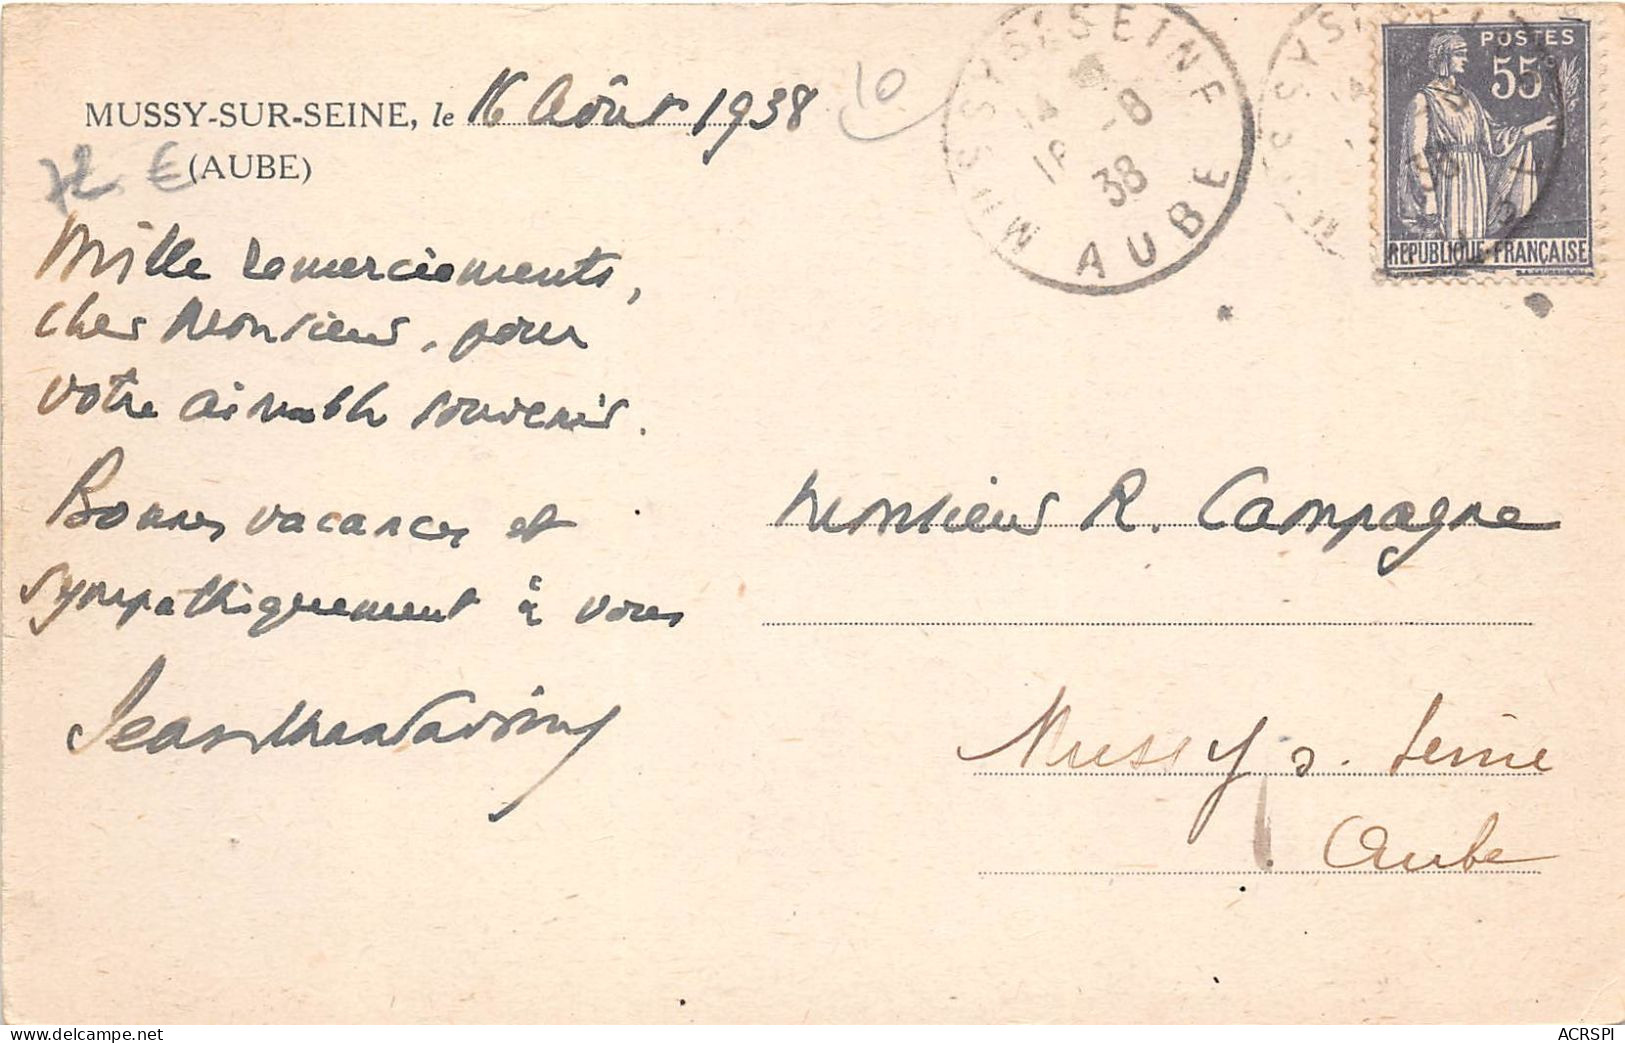 MUSSY-SUR-SEINE, le 16 Août 1938
(AUBE)
10
€
MUSSY S SEINE
AUBE
-8
38
POSTES
55c
REPUBLIQUE FRANÇAISE
Mille remerciements,
cher Monsieur, pour
votre aimable souvenir.
Bonnes vacances et
sympathiquement à vous
Monsieur R. Campagne
Mussy s. Seine
Aube
www.delcampe.net
ACRSPI